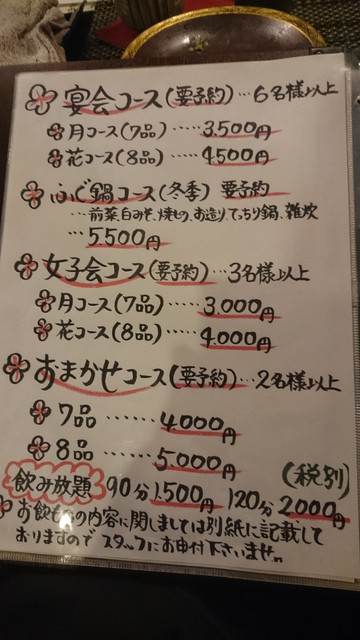 宴会コース(要予約)…6名様以上
月コース(7品)……3,500円
花コース(8品)……4,500円
ふぐ鍋コース(冬季) 要予約
…前菜、白みそ、焼もの、お造り、てっちり鍋、雑炊
…5,500円
女子会コース(要予約)…3名様以上
月コース(7品)……3,000円
花コース(8品)……4,000円
おまかせコース(要予約)…2名様以上
7品……4,000円
8品……5,000円
(税別)
飲み放題 90分1,500円 120分2,000円
お飲みものの内容に関しましては別紙に記載して
おりますのでスタッフにお申付下さいませ。